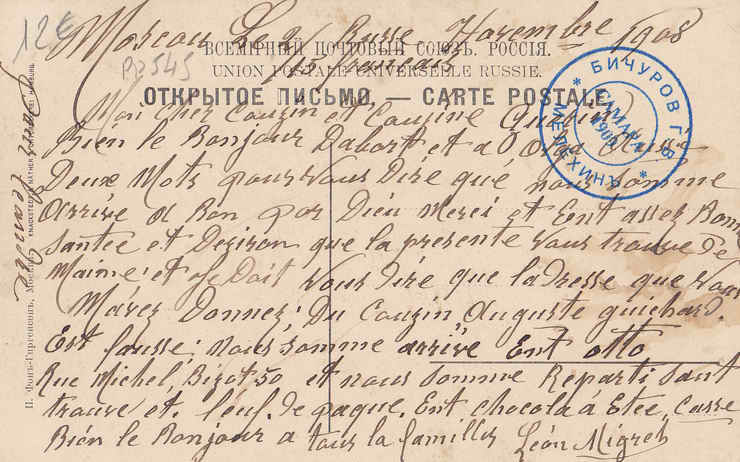 12€
Moscou Le 2/ Russe Novembre 1908
15 francais
ВСЕМІРНЫЙ ПОЧТОВЫЙ СОЮЗЪ. РОССІЯ.
UNION POSTALE UNIVERSELLE RUSSIE.
ОТКРЫТОЕ ПИСЬМО. — CARTE POSTALE.
* БИЧУРОВ Г.В. * МЕХАНИК
САМАРА
Mon Cher Couzin et Couzine
Bien le Bonjour Dabort et a Olga
Deux Mots pour Vous Dire qué nous somme
Arrive a Bon por Dieu Merci et Ent assez Bonne
Santée et Deziron que la presente Vous trouve De
Maime et Je Doit Vous Dire que la Dresse que Vous
Mavez Donnez Du Couzin Auguste guichard.
Est fausse nous somme arrive Ent otto
Rue Michel, Bizot 50 et nous somme Reparti sant
trouve et leuf De paque. Ent chocola a Etee Casse
Bien le Bonjour a tous la famille Léon Migret
П. Фонъ-Гиргенсонъ, Москва